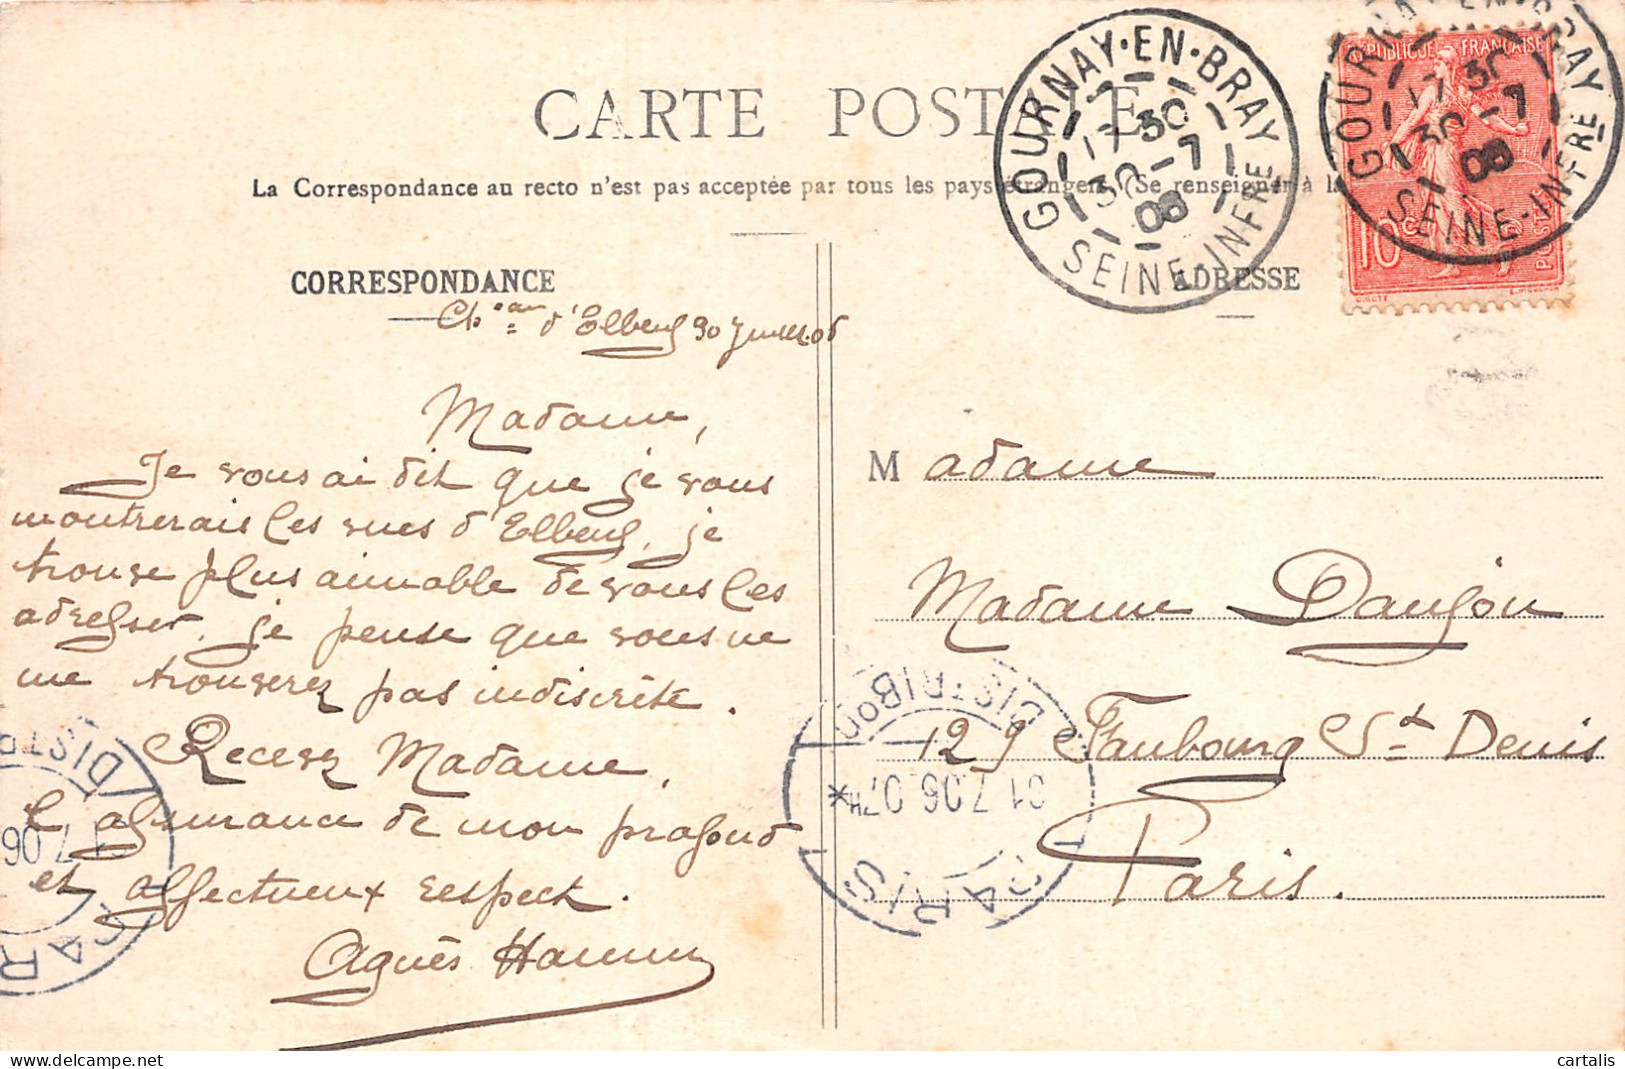 CARTE POSTALE
La Correspondance au recto n'est pas acceptée par tous les pays étrangers (Se renseigner à la
CORRESPONDANCE
ADRESSE
GOURNAY-EN-BRAY
17 30
30-7
06
SEINE-INFRE
GOURNAY-EN-BRAY
17 30
30-7
06
SEINE-INFRE
RÉPUBLIQUE FRANÇAISE
10c POSTES
d'Elbeuf 30 Juillet 06
Madame,
Je vous ai dit que je vous
montrerais les vues d'Elbeuf, je
trouve plus aimable de vous les
adresser, je pense que vous ne
me trouverez pas indiscrète.
Recevez Madame,
l'assurance de mon profond
et affectueux respect.
Agnès
Madame
Madame Daujon
129 Faubourg St Denis
Paris.
PARIS
DISTRIBon
31 7 06
PARIS
DISTR
7 06
cartalis